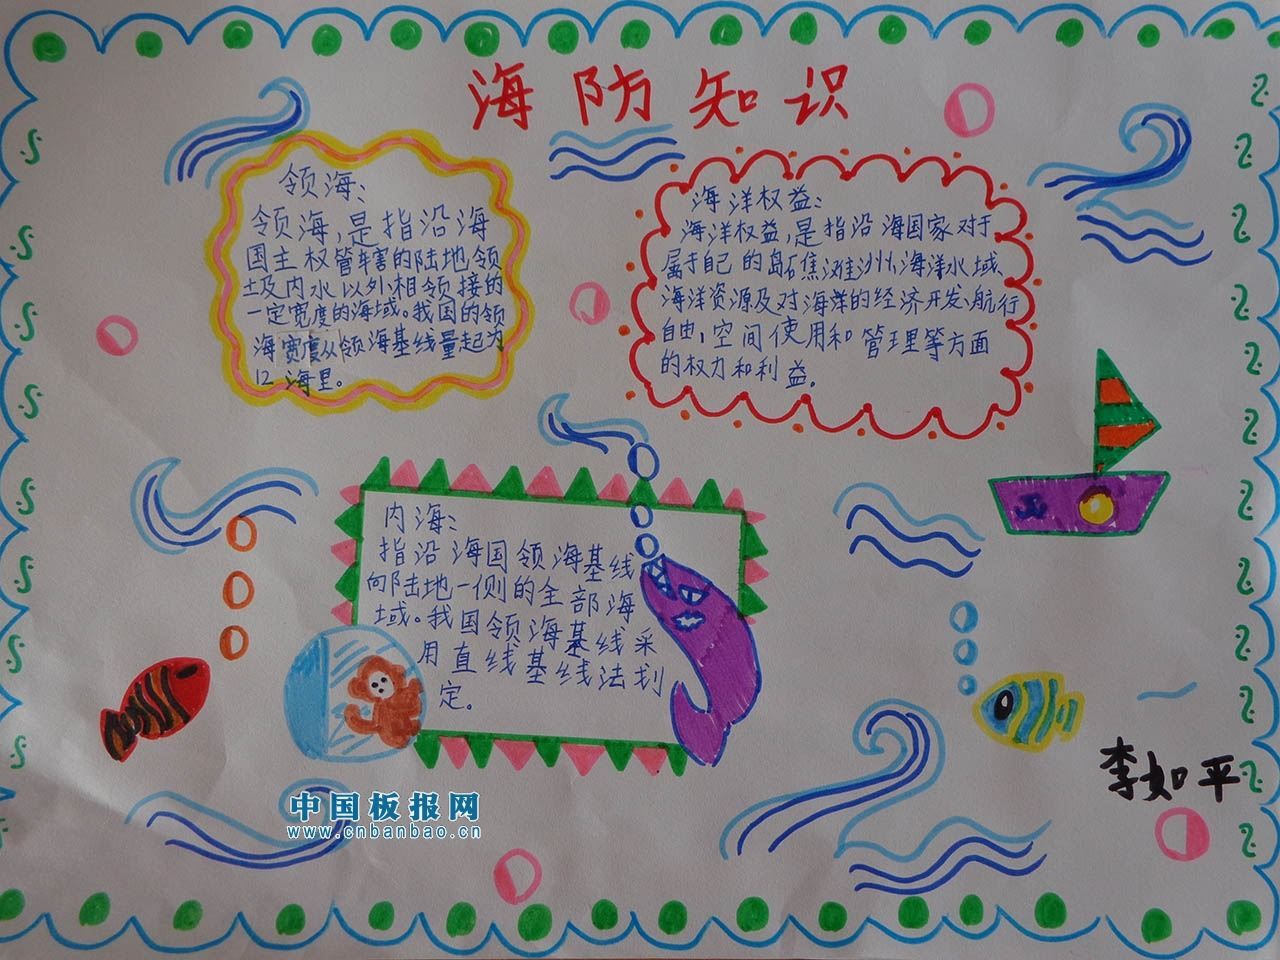 海防知识
领海：
领海，是指沿海
国主权管辖的陆地领
土及内水以外相领接的
一定宽度的海域。我国的领
海宽度从领海基线量起为
12海里。
海洋权益：
海洋权益，是指沿海国家对于
属于自己的岛礁滩洲、海洋水域、
海洋资源及对海洋的经济开发、航行
自由，空间使用和管理等方面
的权力和利益。
内海：
指沿海国领海基线
向陆地一侧的全部海
域。我国领海基线采
用直线基线法划
定。
李如平
中国板报网
www.cnbanbao.cn